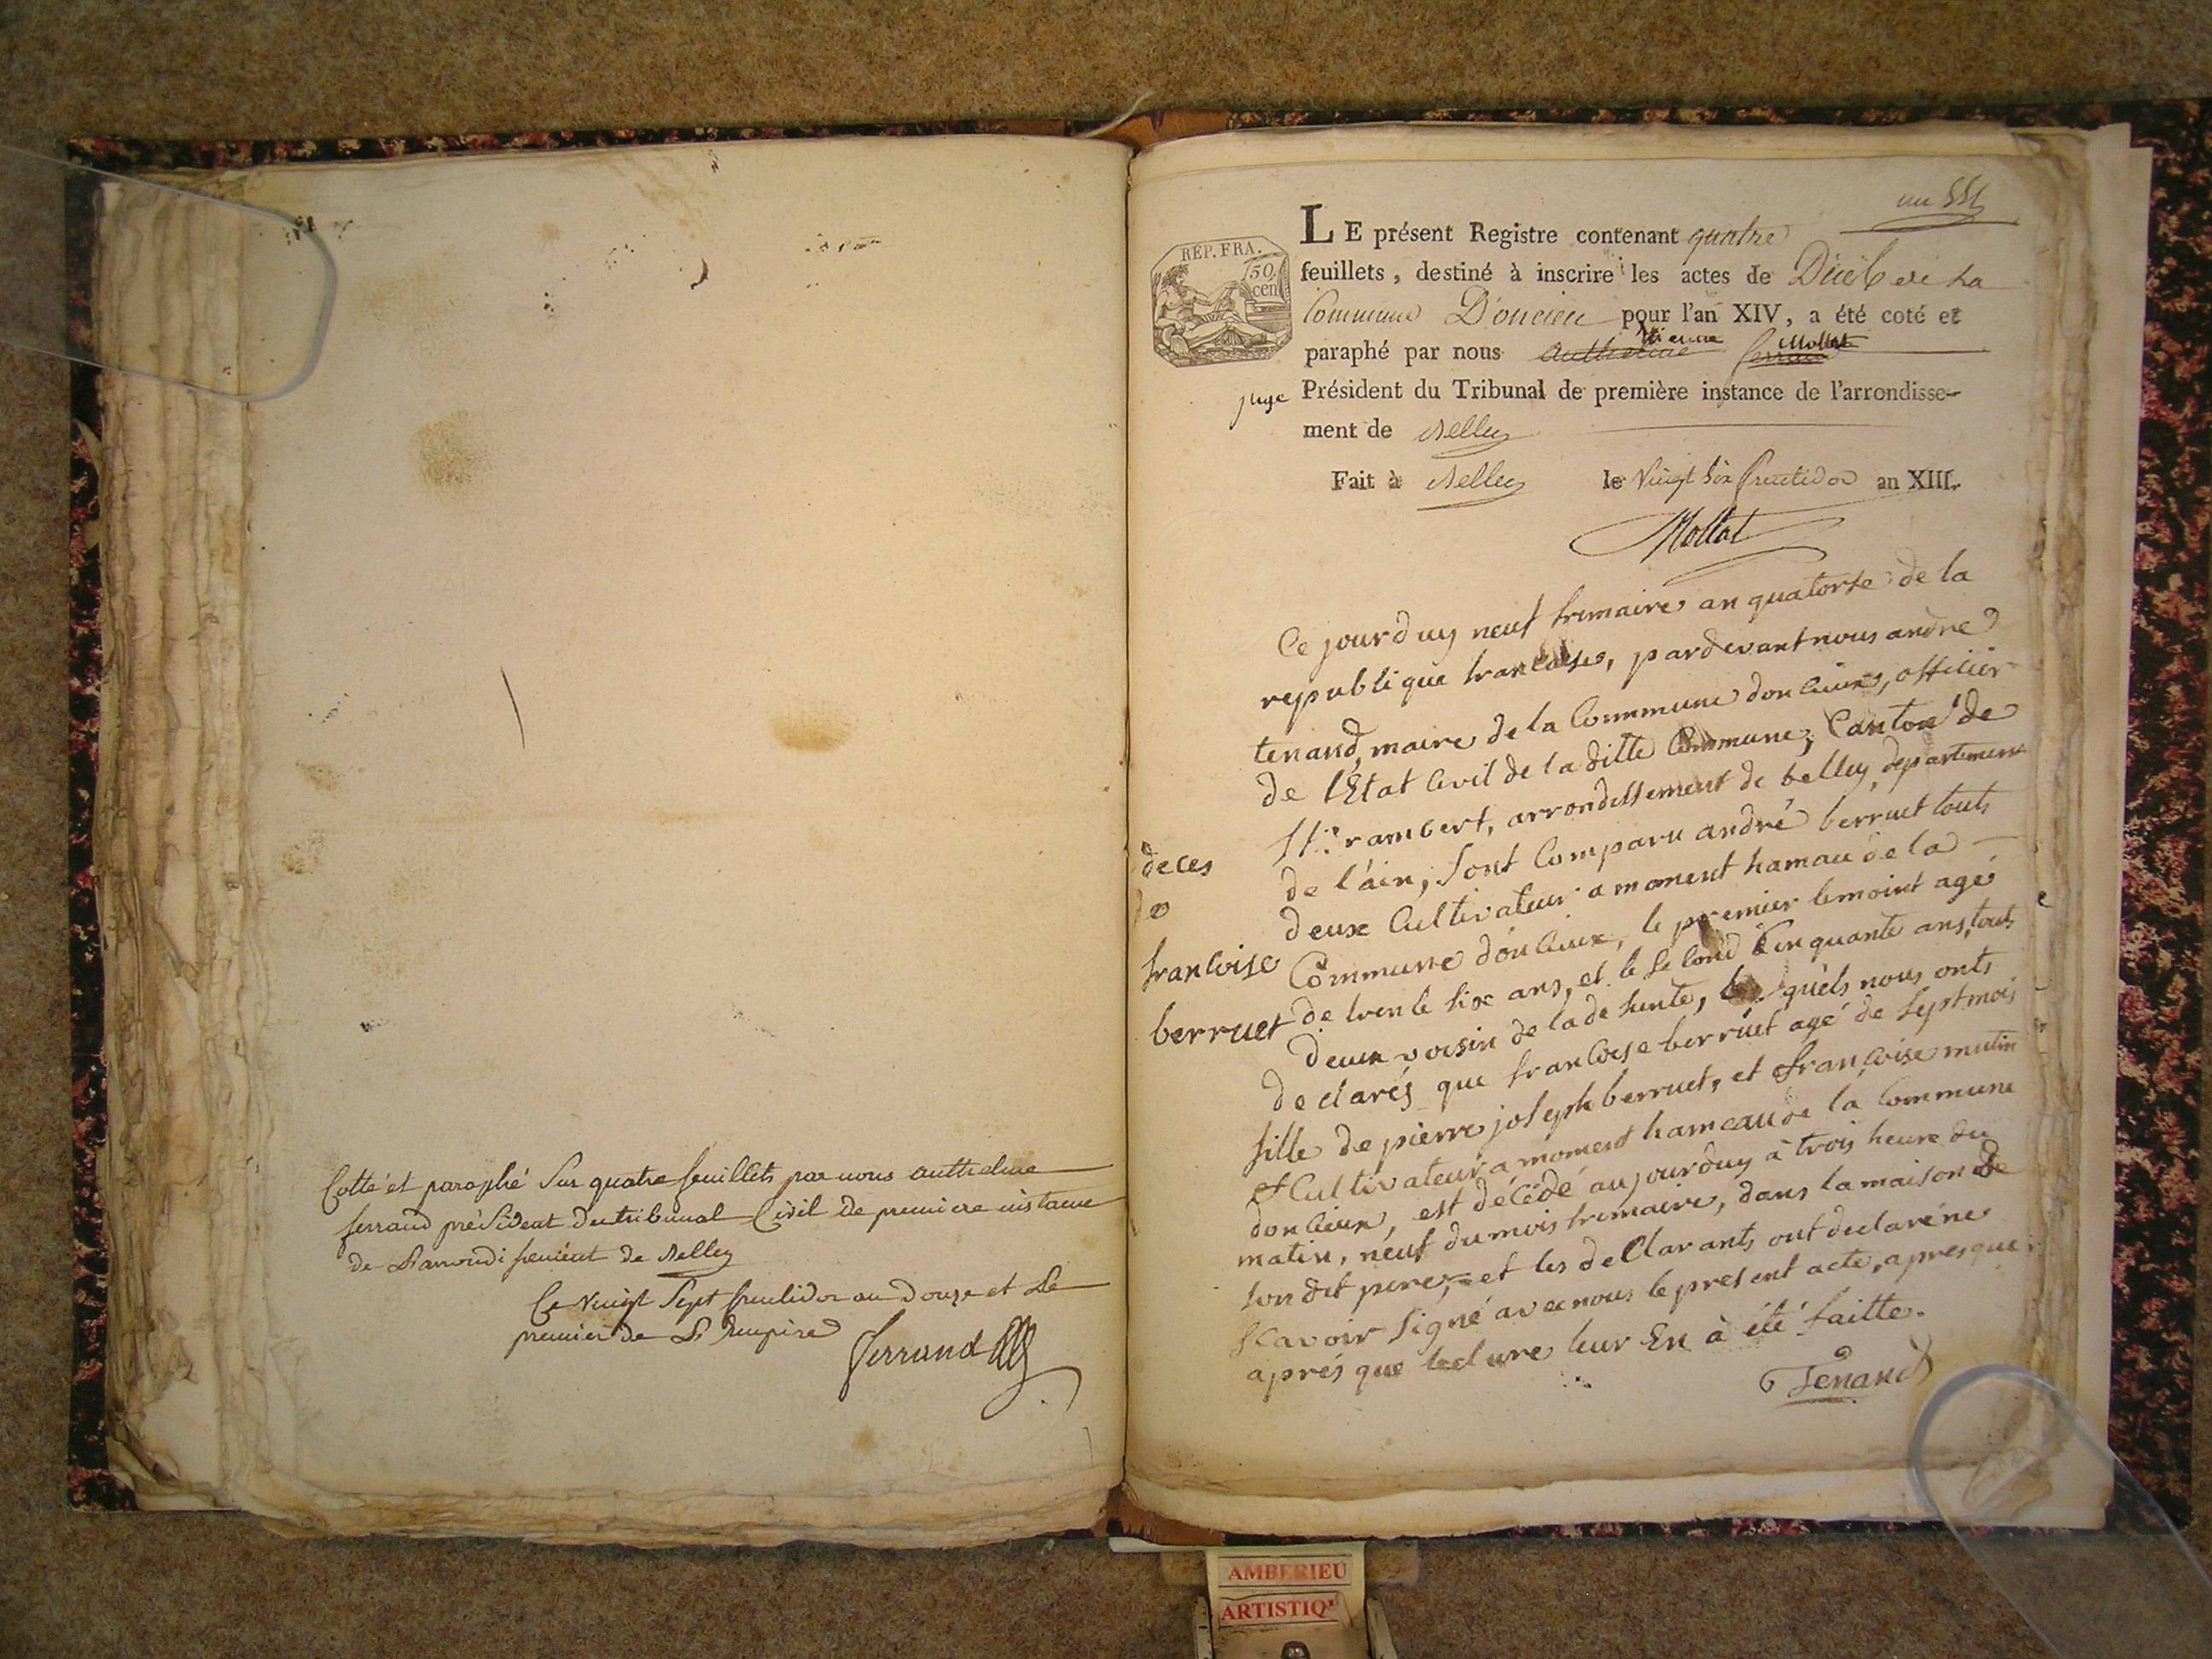 Cotté et paraphé Sur quatre feuillets par nous anthelme
ferrand président du tribunal Civil de premiere instance
de L'arrondissement de Belley
Ce vingt Sept fructidor an douze et Le
premier de L'Empire
Ferrand
un
LE présent Registre contenant quatre
feuillets, destiné à inscrire les actes de Décès de La
Commune D'oncieu pour l'an XIV, a été coté et
paraphé par nous anthelme ferrand Mollet
juge Président du Tribunal de première instance de l'arrondisse-
ment de Belley
Fait à Belley le Vingt Six fructidor an XIII.
Mollet
REP. FRA.
50
cen
Ce jourduy neuf frimaire an quatorse de la
republique francaise, pardevant nous andre
tenand, maire de la Commune donlieux, officier
de l'Etat Civil de la ditte Commune, Canton de
St. rambert, arrondissement de belley, departement
de l'ain, sont Comparu andré berruet touts
deux Cultivateur a moment hamau de la
Commune donlieux, le premier temoint agé
de trente six ans, et le second Cinquante ans, touts
deux voisin de la defunte, quels nous onts
declarés que francoise berruet agé de sept mois
fille de pierre joseph berruet, et françoise mutin
Cultivateur a moment hameau de la Commune
donlieux, est décédé aujourduy à trois heure du
matin, neuf du mois frimaire, dans la maison de
son dit pere, et les declarants ont declaré ne
scavoir signé avec nous le present acte, apres que
aprés que lecture leur En à été faitte.
Tenand
deces
de
francoise
berruet
AMBERIEU
ARTISTIQ